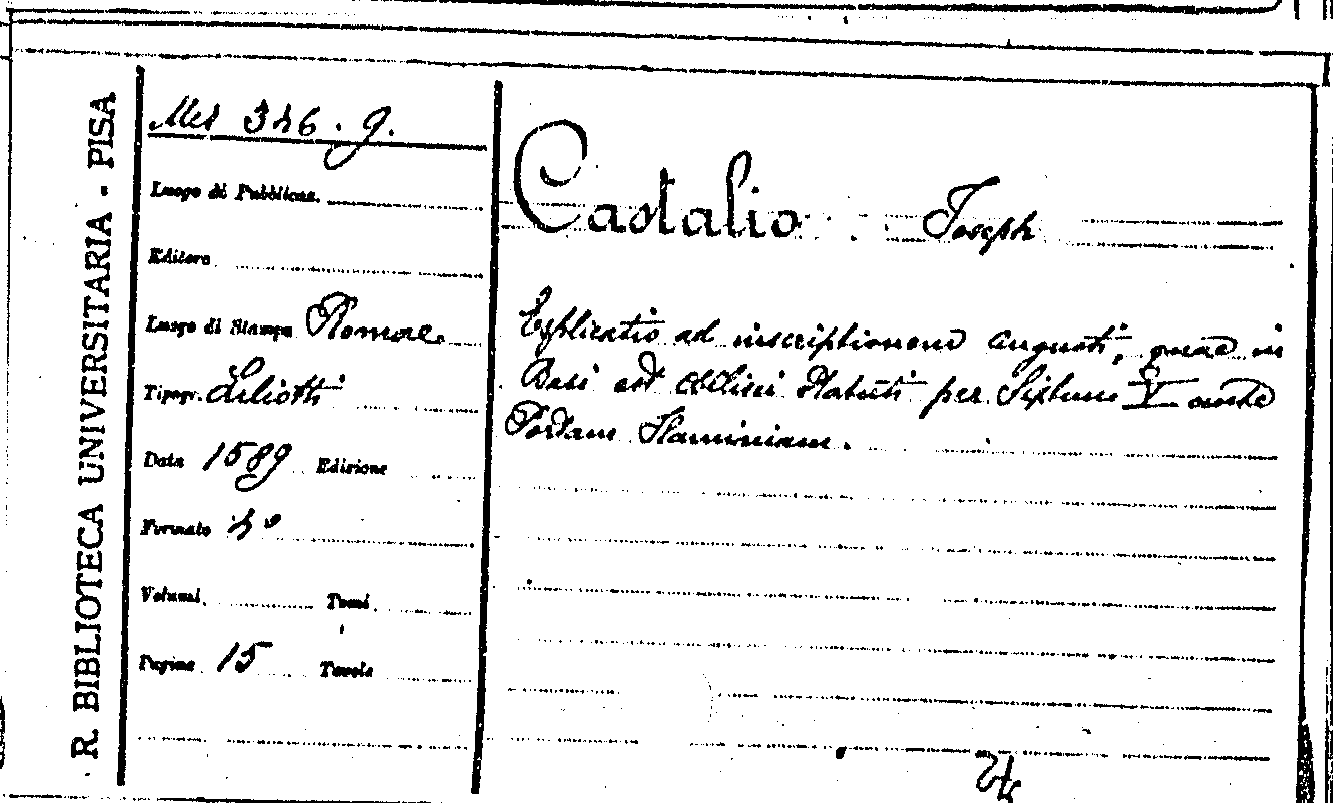 R. BIBLIOTECA UNIVERSITARIA - PISA
Mis 346. 9.
Luogo di Pubblicaz.
Editore
Luogo di Stampa Romae.
Tipogr. Liliotti
Data 1589 Edizione
Formato 4°
Volumi Tomi
Pagine 15 Tavole
Castalio Joseph
Explicatio ad inscriptionem Augusti, quae in
Basi est Obelisci Statuti per Sixtum V ante
Portam Flaminiam.